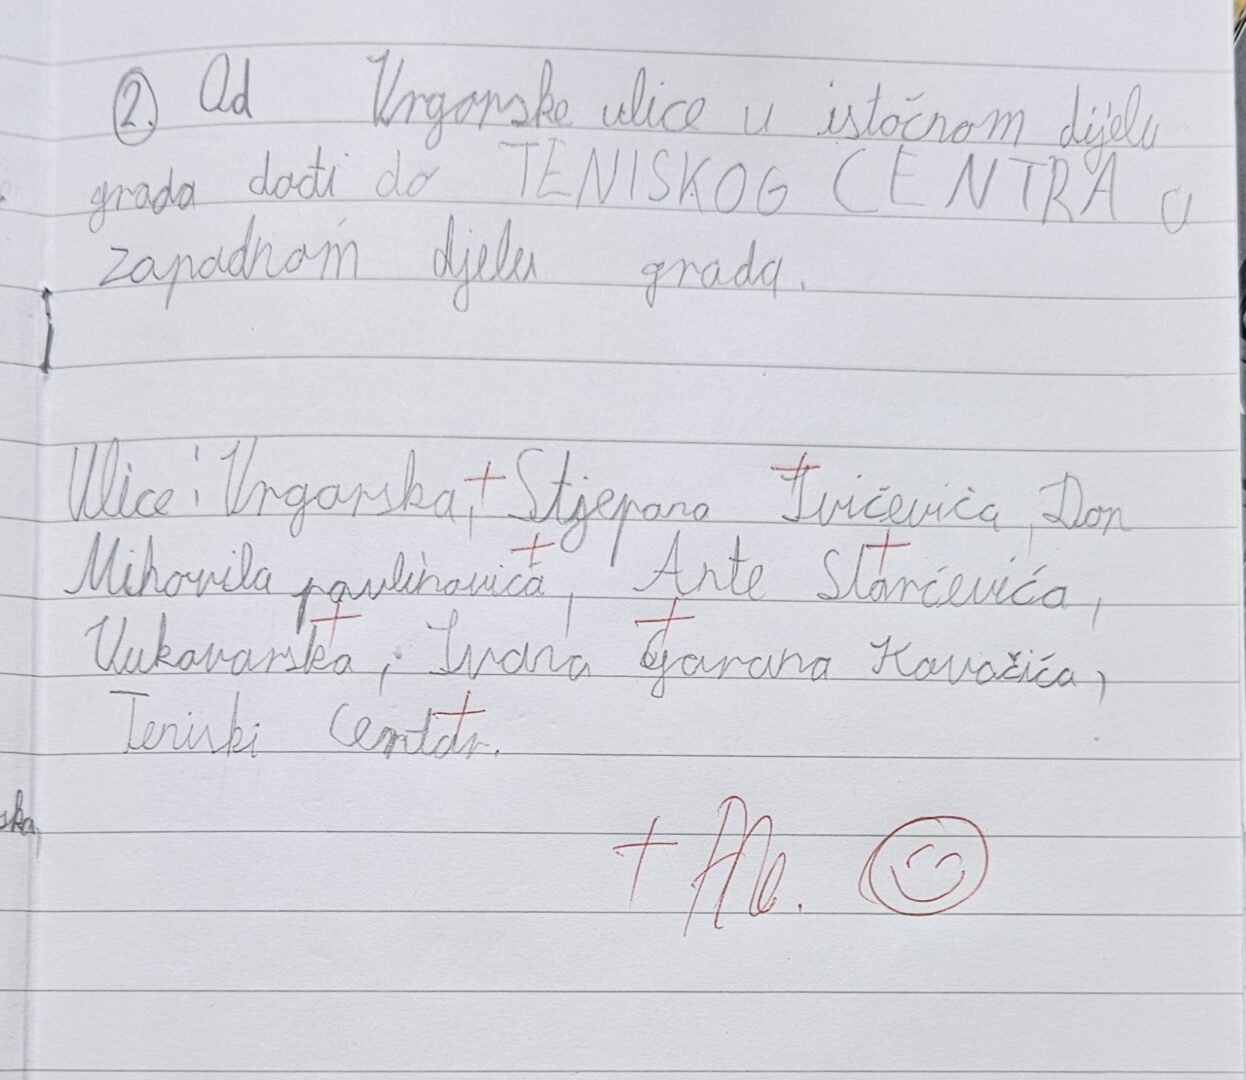 2. Od Vrgorske ulice u istočnom dijelu
grada doći do TENISKOG CENTRA u
zapadnom djelu grada.
Ulice: Vrgorska, Stjepana Ivičevića, Don
Mihovila pavlinovića, Ante Starčevića,
Vukovarska, Ivana Gorana Kovačića,
Teniski Centar.
ska,
+